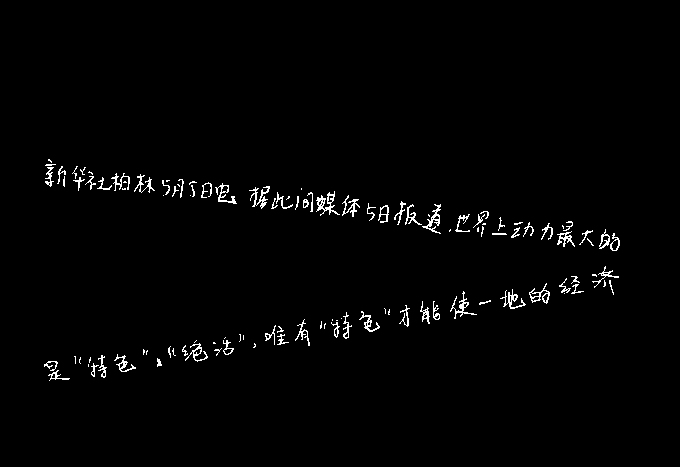 新华社柏林5月5日电。据此间媒体5日报道,世界上动力最大的
是"特色"。"绝活",唯有"特色"才能使一地的经济